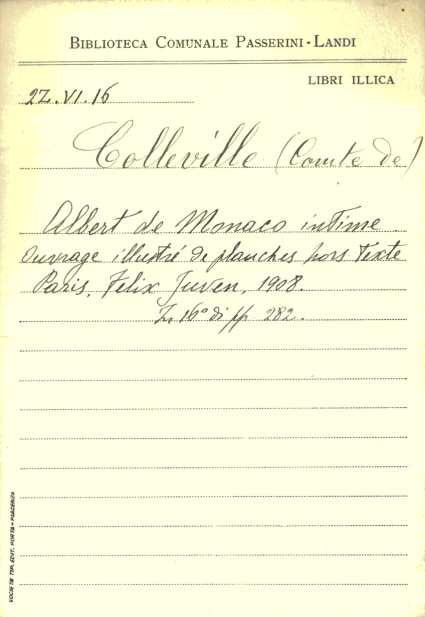 BIBLIOTECA COMUNALE PASSERINI-LANDI
LIBRI ILLICA
2Z.VI.16
Colleville (Comte de)
Albert de Monaco intime.
Ouvrage illustré de planches hors texte
Paris, Felix Juven, 1908.
In 16º di pp 282.
SOCIETÀ TIP. EDIT. PORTA - PIACENZA